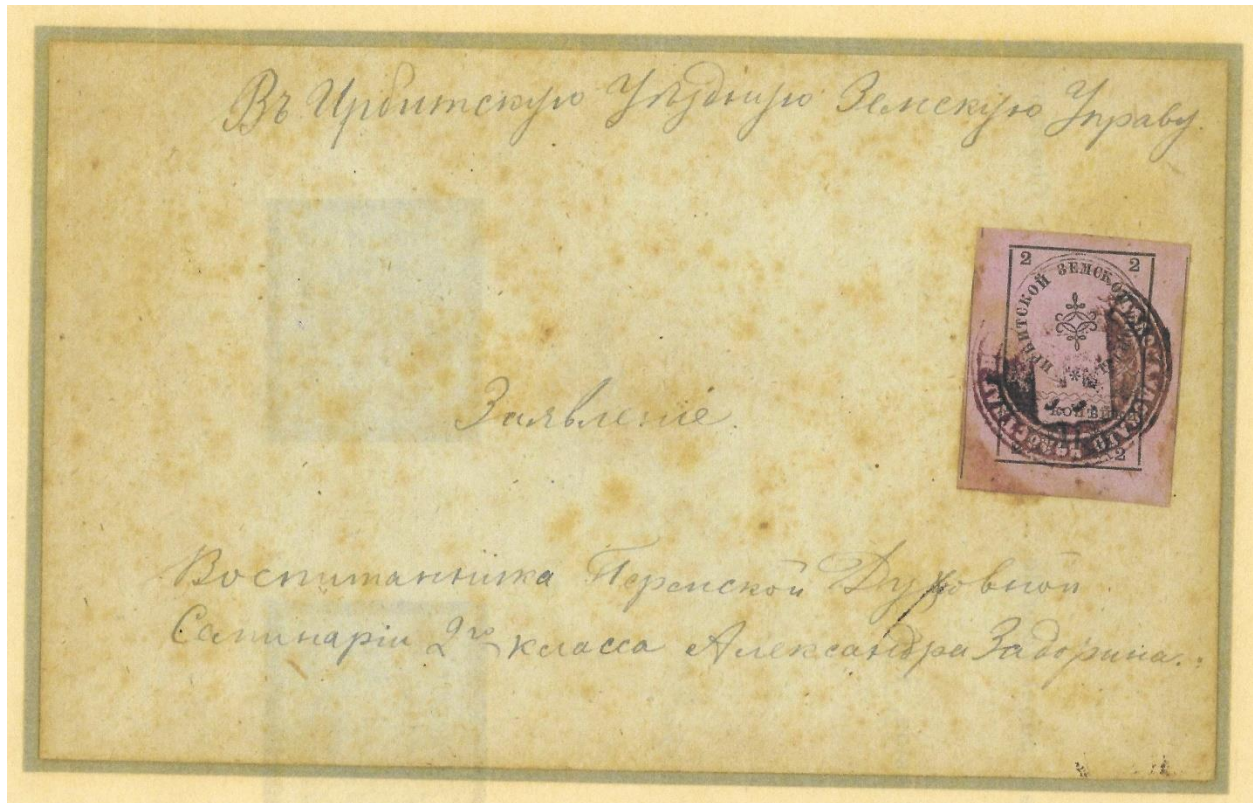 Въ Ирбитскую Уѣздную Земскую Управу
2 2
ИРБИТСКОЙ ЗЕМСКОЙ
КОПѢЙКИ
2 2
Заявленіе.
Воспитанника Пермской Духовной
Семинаріи 2го класса Александра Задорина.